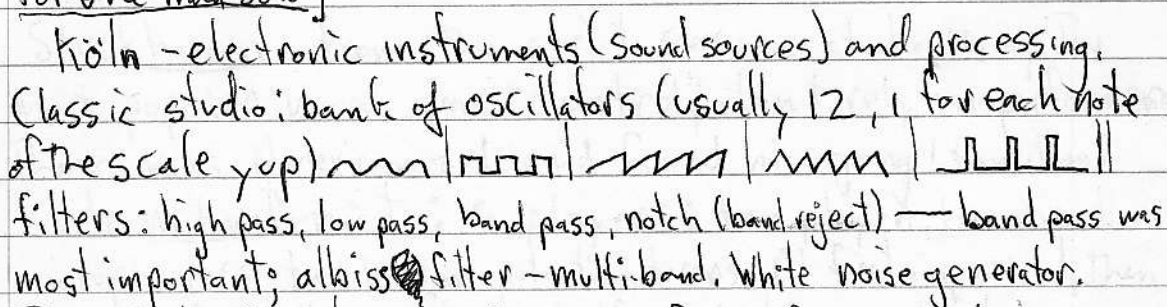 Köln - electronic instruments (sound sources) and processing.
Classic studio: bank of oscillators (usually 12, 1 for each note
of the scale yup)
filters: high pass, low pass, band pass, notch (band reject) — band pass was
most important; albiss filter - multi-band. White noise generator.